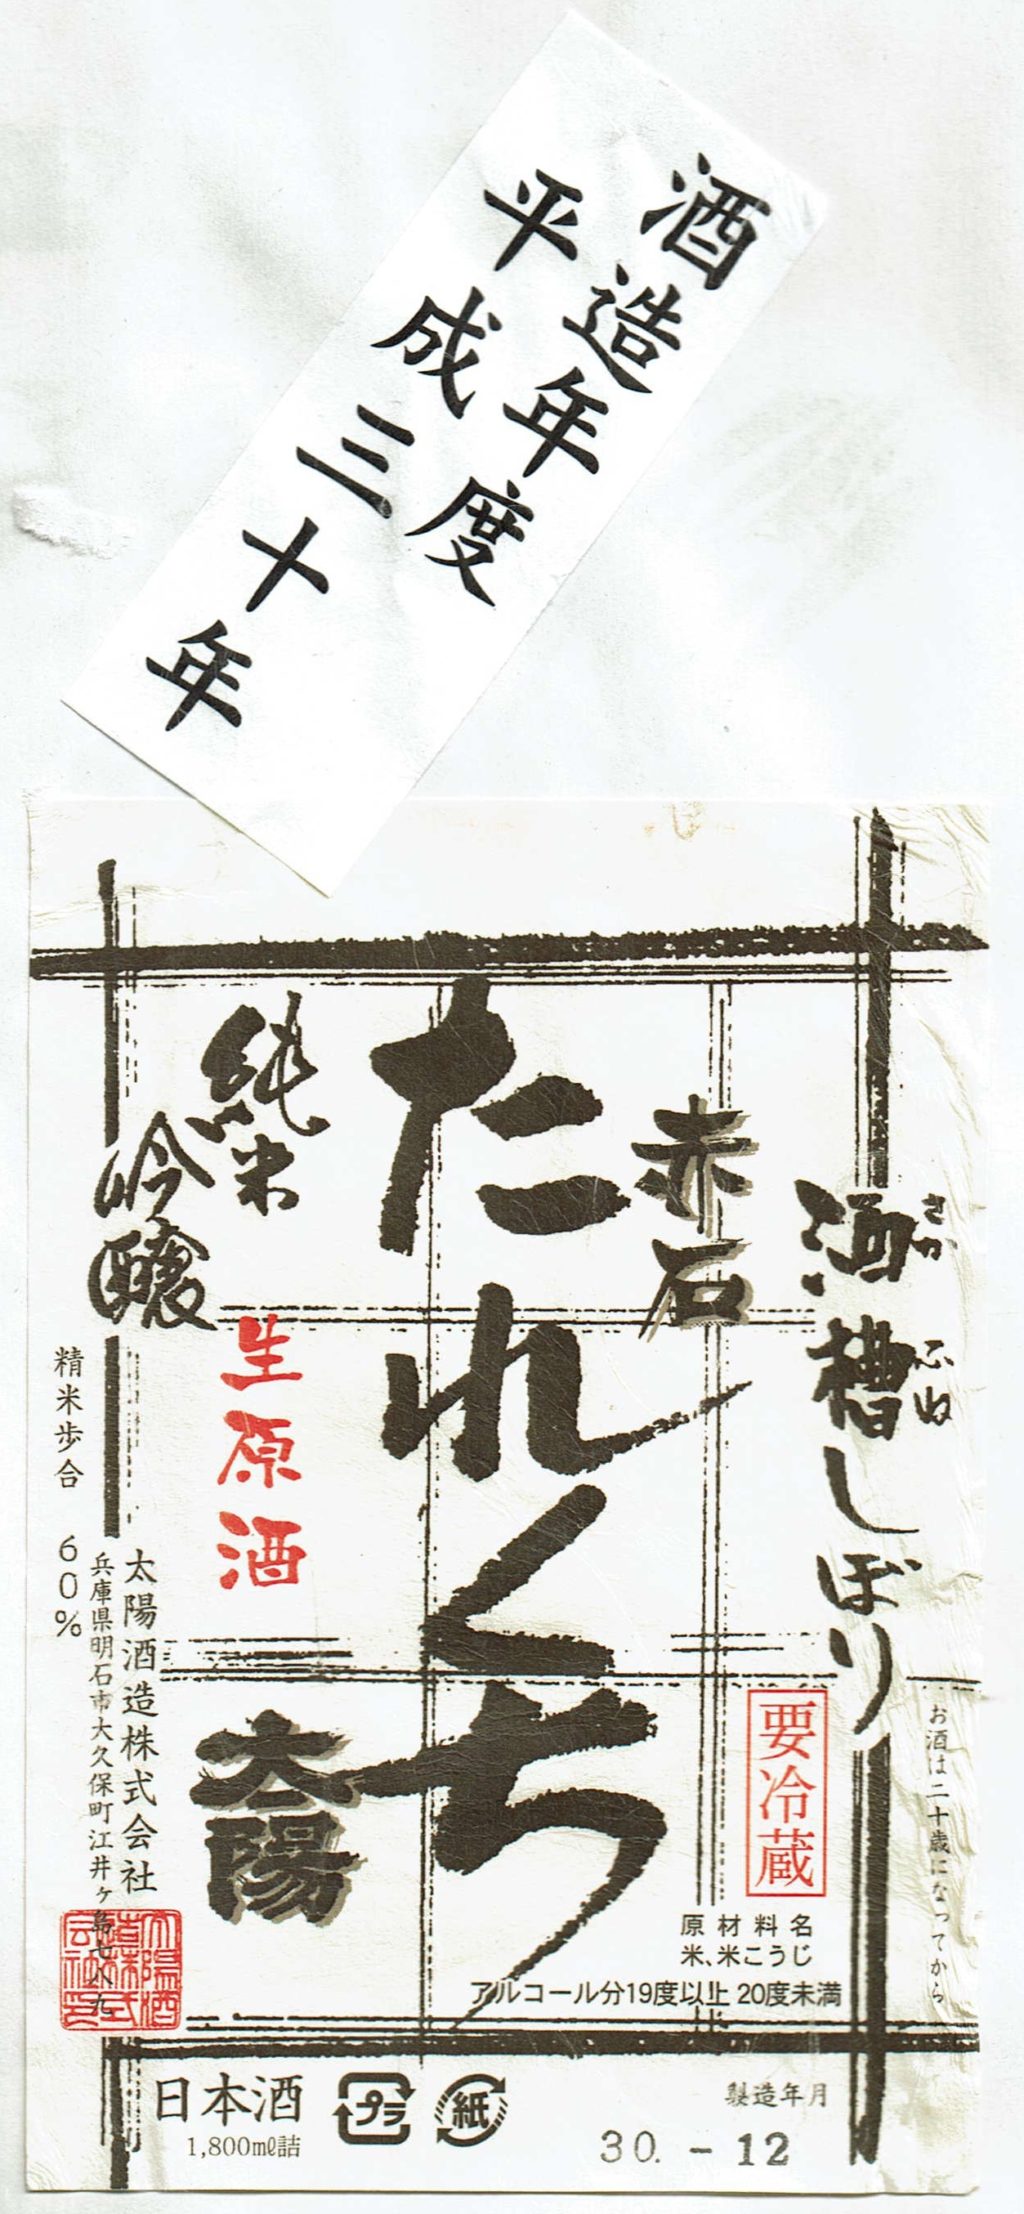 酒造年度
平成三十年
酒槽しぼり
さか
ふね
赤石
たれくち
純米
吟醸
生原酒
太陽
精米歩合 60%
太陽酒造株式会社
兵庫県明石市大久保町江井ヶ島七八九
要冷蔵
お酒は二十歳になってから
原材料名
米、米こうじ
アルコール分19度以上 20度未満
日本酒
1,800mℓ詰
プラ
紙
製造年月
30. - 12